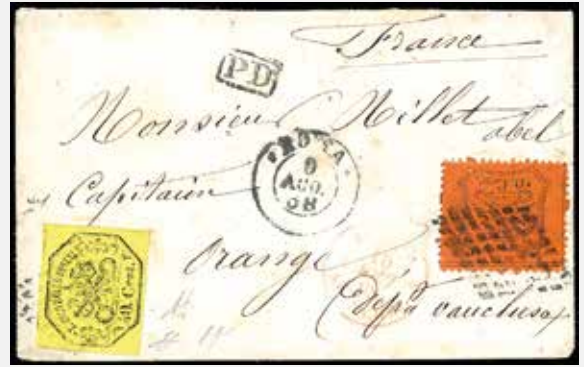 France
PD
Monsieur Millet abel
ROMA
9
AGO.
68
Capitain
Orange
(dép.t vaucluse)
40 Cent.